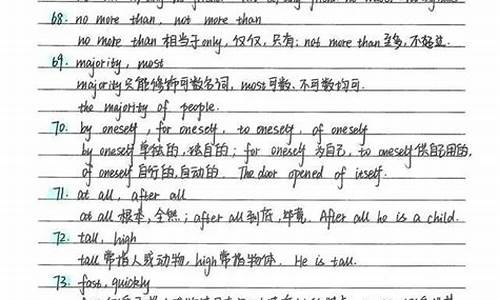 68. no more than, not more than
no more than 相当于only, 仅仅, 只有; not more than至多, 不超过.
69. majority, most
majority只能修饰可数名词, most可数、不可数均可.
the majority of people.
70. by oneself, for oneself, to oneself, of oneself
by oneself 单独的, 独自的; for oneself 为自己, to oneself供自己用的,
of oneself自行的, 自动的. The door opened of itself.
71. at all, after all
at all 根本, 全然; after all 到底, 毕竟. After all he is a child.
72. tall, high
tall 常指人或动物, high常指物体. He is tall.
73. fast, quickly